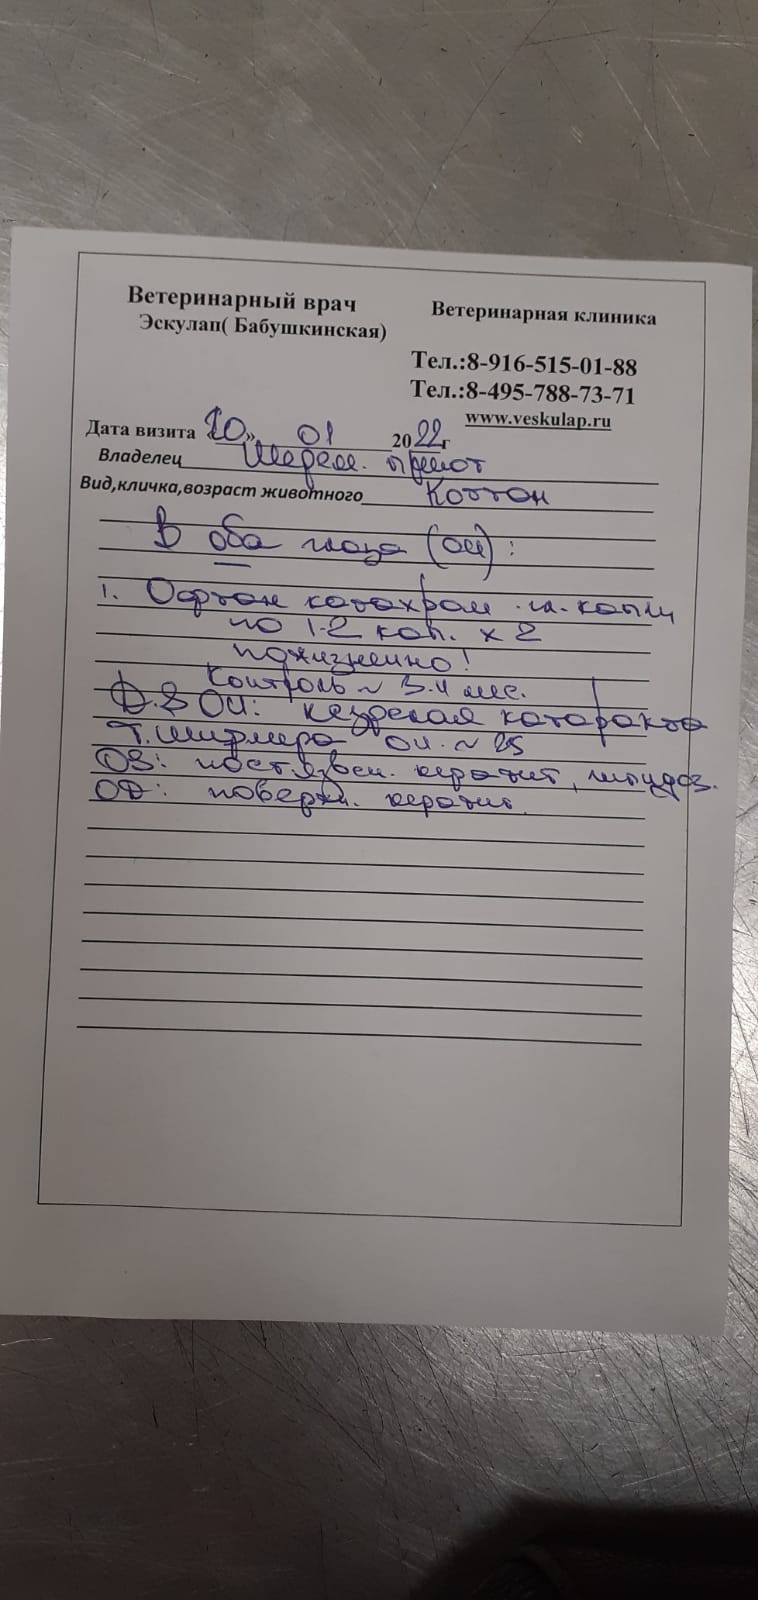 Ветеринарный врач
Эскулап( Бабушкинская)
Ветеринарная клиника
Тел.:8-916-515-01-88
Тел.:8-495-788-73-71
www.veskulap.ru
Дата визита «10» 01 2022г
Владелец Шерем. приют
Вид,кличка,возраст животного Коттон
В оба глаза (ОИ):
1. Офтан катахром гл. капли
по 1-2 кап. х 2
пожизненно!
Контроль ~ 3-4 мес.
D.S ОИ: незрелая катаракта
Т. Ширмера ОИ ~ 25
OS: постязвен. кератит,
OD: поверхн. кератит.